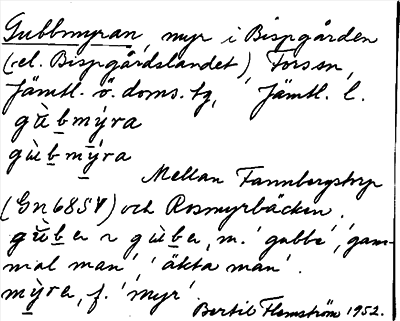 Gubbmyran, myr i Bispgården
(el. Bispgårdslandet), Fors sn,
Jämtl. ö. doms. tg, Jämtl. l.
gŭ̀b̲mýra
gùb̲mýra
Mellan Fannbergstorp
(Gn 6854) och Rosmyrbäcken.
gŭ̀b̲a ~ gùb̲a, m. 'gubbe', 'gam-
mal man', 'äkta man'.
mỳra, f. 'myr'
Bertil Flemström 1952.